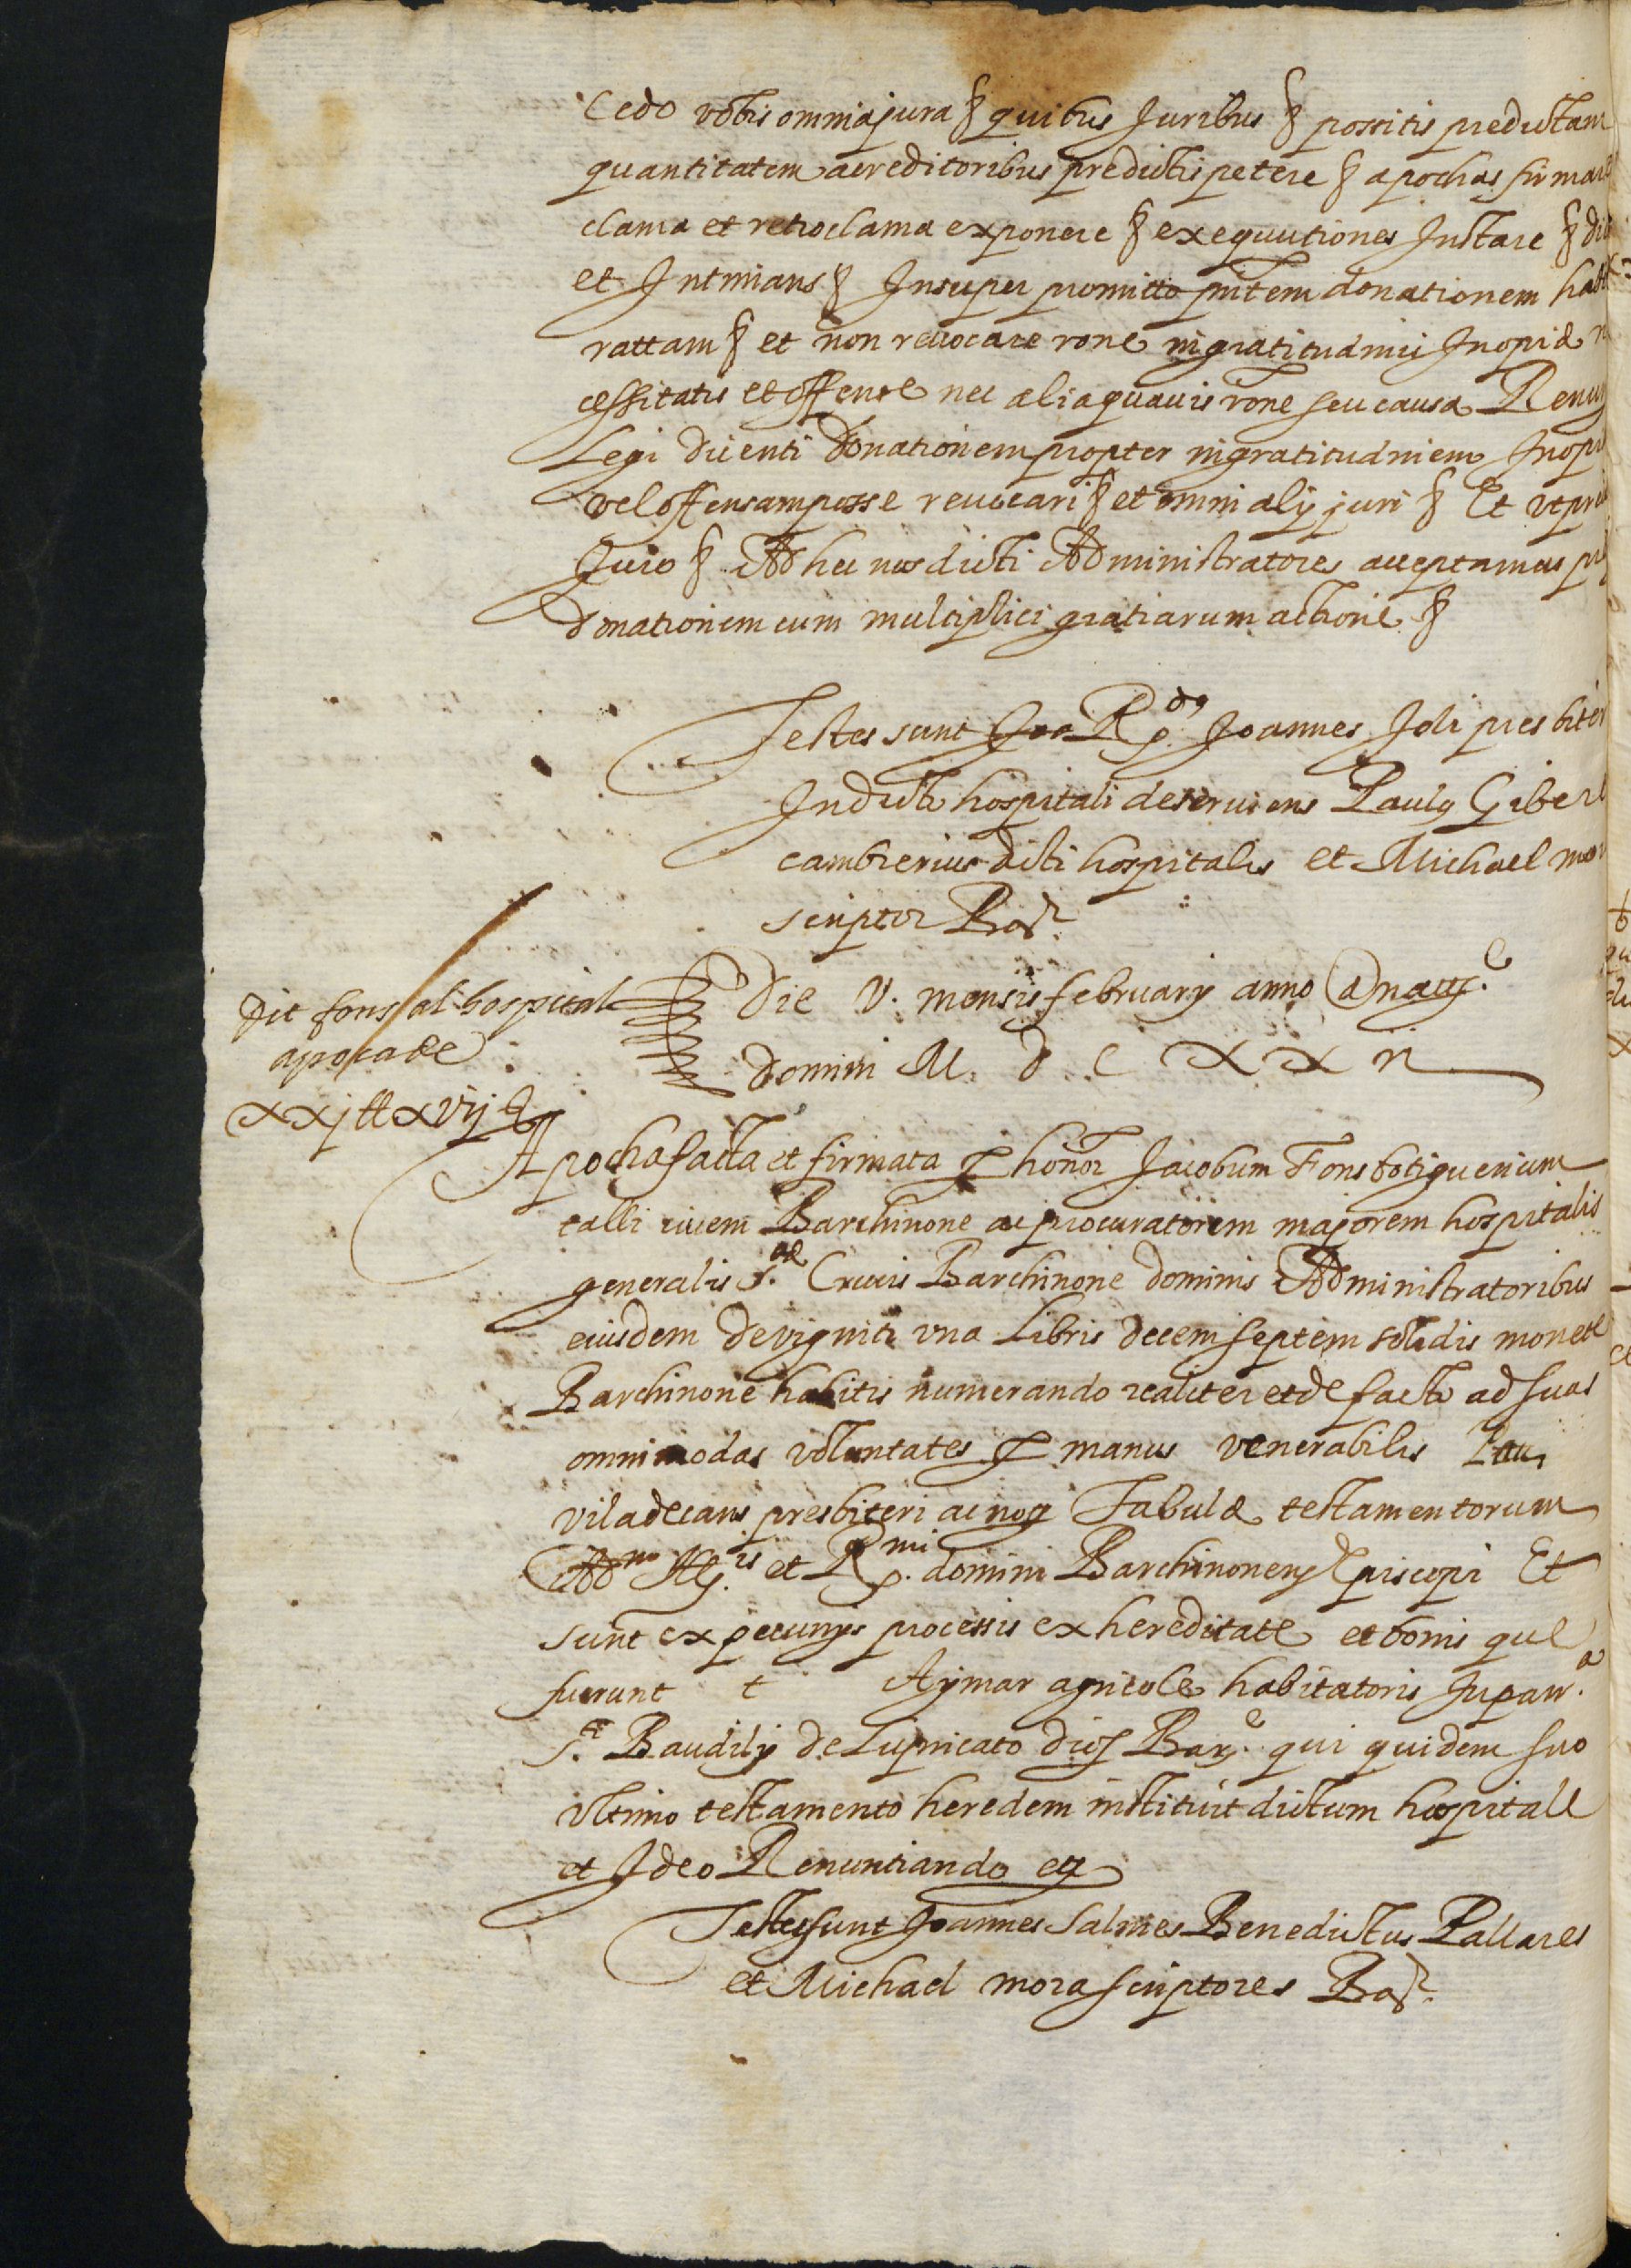 Cedo vobis omnia jura § quibus Juribus § possitis predictam
quantitatem acreditoribus predictis petere § apochas firmare
clama et retroclama exponere § exequutiones Instare §
et Intimans § Insuper promitto pntem donationem
rattam § et non revocare rone ingratitudinis Inopiæ
cessitatis et offense nec aliaquavis rone seu causa
Legi dicenti donationem propter ingratitudinem
vel offensam posse revocari § et omni alij juri § Et ut
Juro § Ad hec nos dicti Administratores acceptamus
donationem cum multiplici gratiarum actione §
Testes sunt Rdus Joannes Joli presbiter
In dicto hospitali deserviens Paulus Gibert
cambrerius dicti hospitalis et Michael
scriptor Bar
Die V. mensis february anno a nat.e
domini M. D C XX II
Dit fons al hospital
apoca de
xxj ll xvij s
Apocha facta et firmata per honor Jacobum Fons botiguerium
talli civem Barchinone ac procuratorem majorem hospitalis
generalis S.æ Crucis Barchinone dominis Administratoribus
eiusdem de viginti una Libris decem septem solidis monete
Barchinone habitis numerando realiter et de facto ad suas
omnimodas voluntates per manus venerabilis Pau
viladecans presbiteri ac not Tabulæ testamentorum
et R.mi domini Barchinonens Episcopi Et
sunt ex pecunijs processis ex hereditate et bonis que
fuerunt t Aymar agricole habitatoris In parr.a
S.ti Baudilij de Lupricato dios Bar.e qui quidem suo
ultimo testamento heredem instituit dictum hospitale
et Ideo Renuntiando etc
Testes sunt Joannes Salines Benedictus Pallares
et Michael mora scriptores Bar